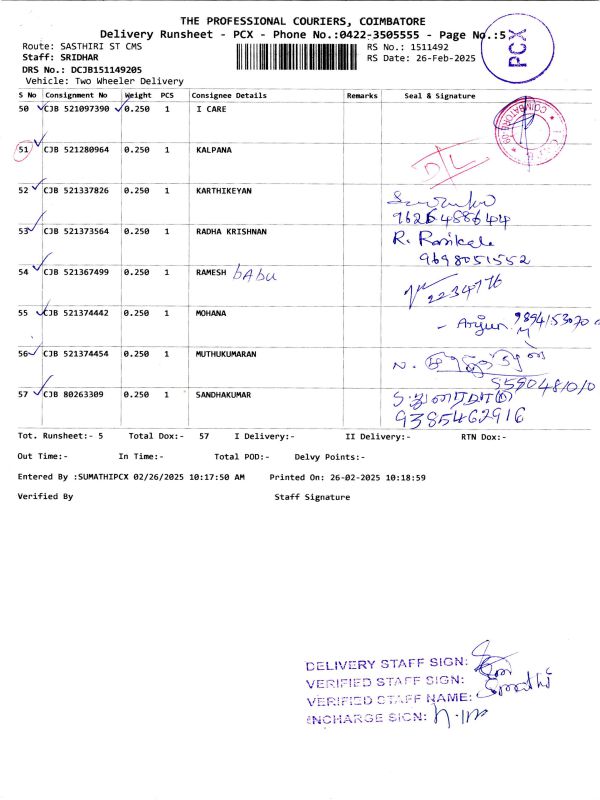 THE PROFESSIONAL COURIERS, COIMBATORE
Delivery Runsheet - PCX - Phone No.:0422-3505555 - Page No.:5
PCX
Route: SASTHIRI ST CMS
RS No.: 1511492
Staff: SRIDHAR
RS Date: 26-Feb-2025
DRS No.: DCJB151149205
Vehicle: Two Wheeler Delivery
S No Consignment No Weight PCS Consignee Details Remarks Seal & Signature
50 CJB 521097390 0.250 1 I CARE
51 CJB 521280964 0.250 1 KALPANA D/L
52 CJB 521337826 0.250 1 KARTHIKEYAN
9626488644
53 CJB 521373564 0.250 1 RADHA KRISHNAN R. Rasikala
9698051552
54 CJB 521367499 0.250 1 RAMESH babu
55 CJB 521374442 0.250 1 MOHANA - Arjun 9894153070
56 CJB 521374454 0.250 1 MUTHUKUMARAN N.
57 CJB 80263309 0.250 1 SANDHAKUMAR
9385462916
Tot. Runsheet:- 5 Total Dox:- 57 I Delivery:- II Delivery:- RTN Dox:-
Out Time:- In Time:- Total POD:- Delvy Points:-
Entered By :SUMATHIPCX 02/26/2025 10:17:50 AM Printed On: 26-02-2025 10:18:59
Verified By Staff Signature
DELIVERY STAFF SIGN:
VERIFIED STAFF SIGN:
VERIFIED STAFF NAME: Sumathi
INCHARGE SIGN: